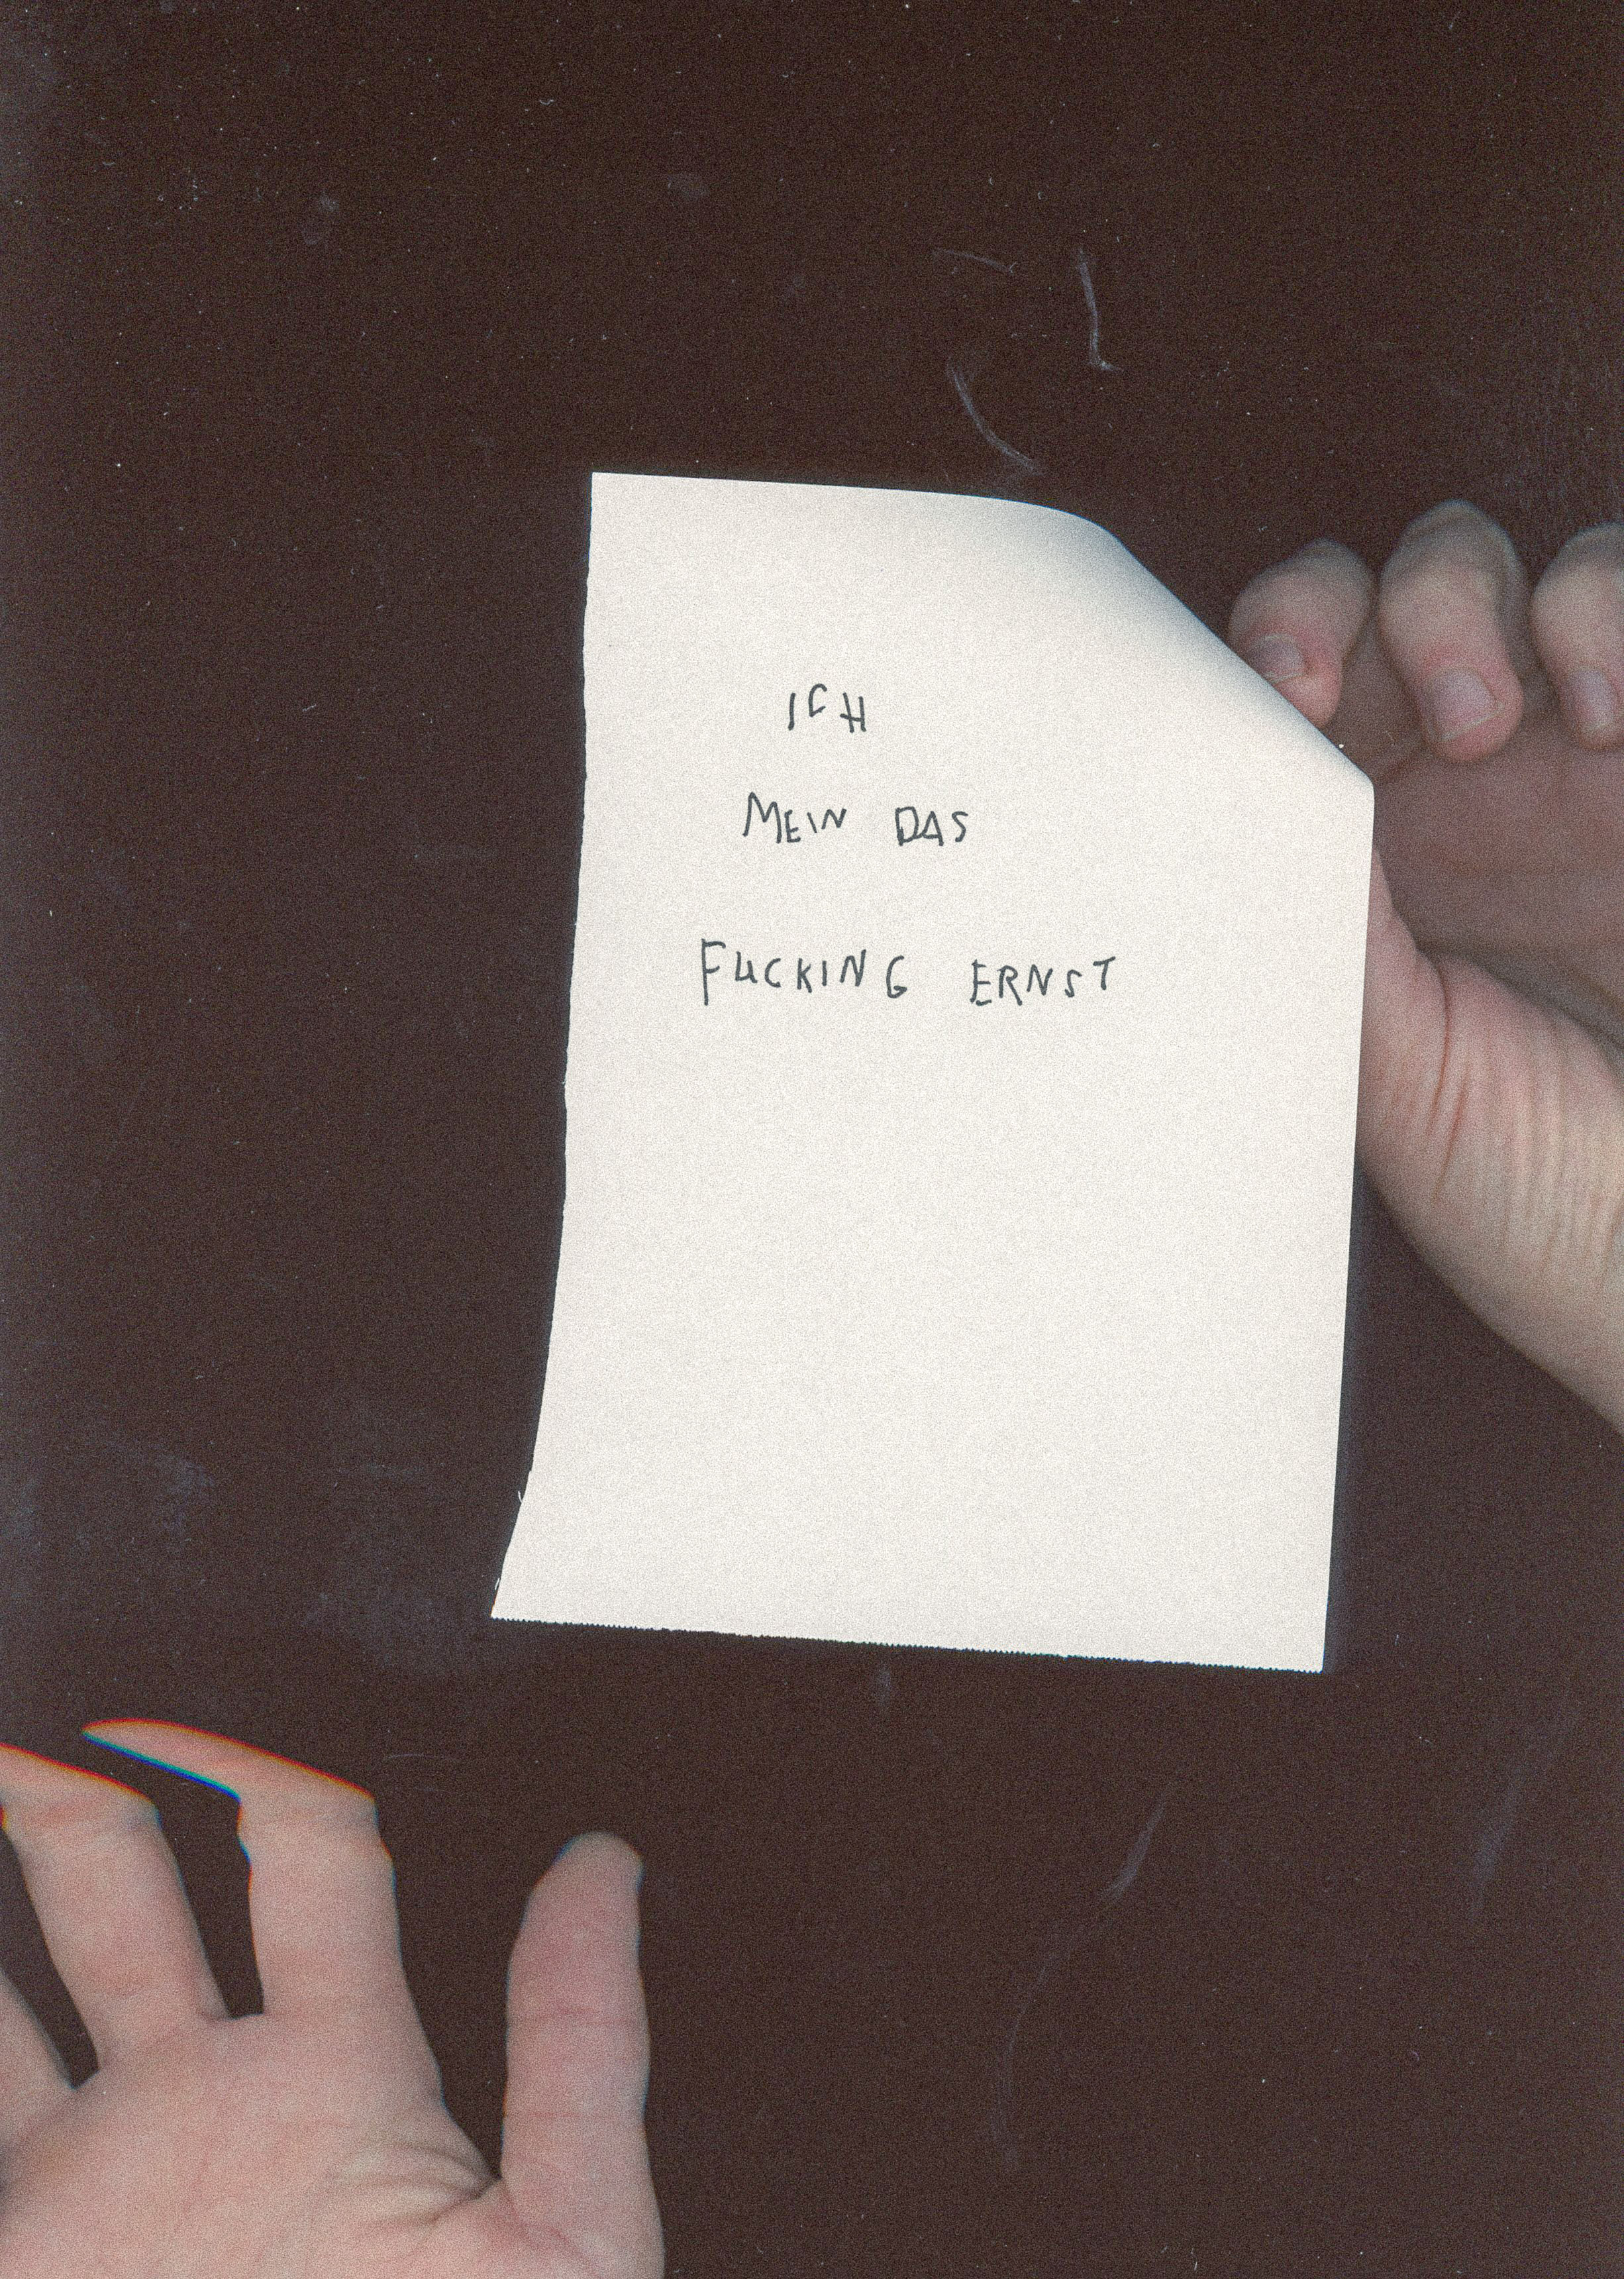 ICH
MEIN DAS
FUCKING ERNST